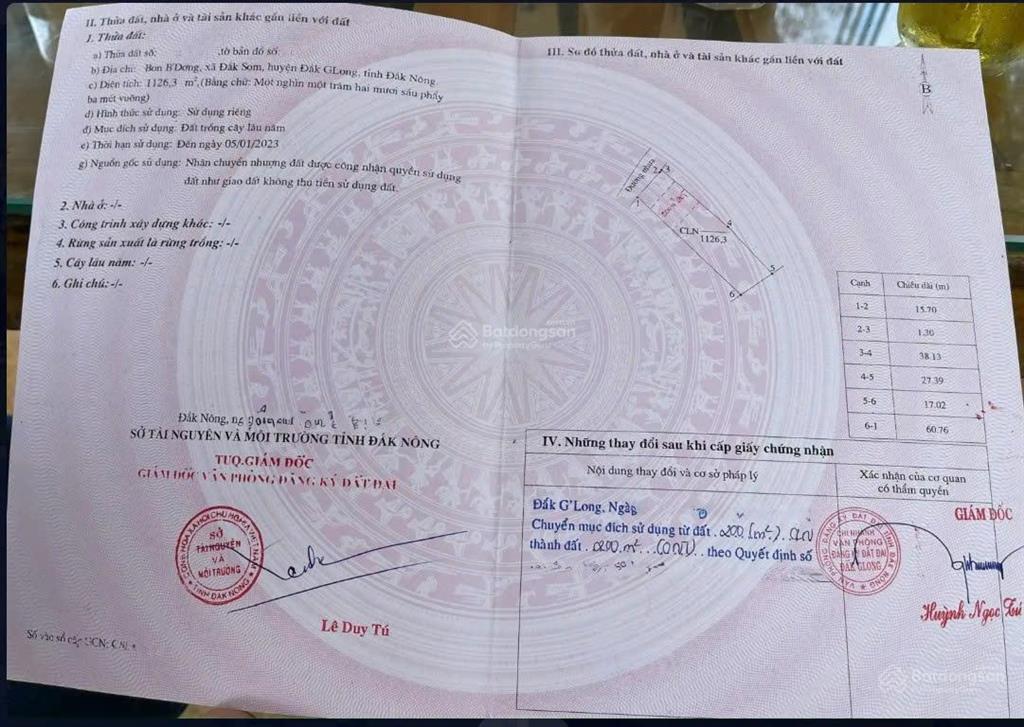 II. Thửa đất, nhà ở và tài sản khác gắn liền với đất
1. Thửa đất:
a) Thửa đất số: ,tờ bản đồ số:
b) Địa chỉ: Bon B'Dơng, xã Đắk Som, huyện Đắk GLong, tỉnh Đắk Nông
c) Diện tích: 1126,3 m², (Bằng chữ: Một nghìn một trăm hai mươi sáu phẩy
ba mét vuông)
d) Hình thức sử dụng: Sử dụng riêng
đ) Mục đích sử dụng: Đất trồng cây lâu năm
e) Thời hạn sử dụng: Đến ngày 05/01/2023
g) Nguồn gốc sử dụng: Nhận chuyển nhượng đất được công nhận quyền sử dụng
đất như giao đất không thu tiền sử dụng đất.
2. Nhà ở: -/-
3. Công trình xây dựng khác: -/-
4. Rừng sản xuất là rừng trồng: -/-
5. Cây lâu năm: -/-
6. Ghi chú: -/-
Đắk Nông,
SỞ TÀI NGUYÊN VÀ MÔI TRƯỜNG TỈNH ĐẮK NÔNG
TUQ.GIÁM ĐỐC
GIÁM ĐỐC VĂN PHÒNG ĐĂNG KÝ ĐẤT ĐAI
CỘNG HÒA XÃ HỘI CHỦ NGHĨA VIỆT NAM
SỞ
TÀI NGUYÊN
VÀ
MÔI TRƯỜNG
TỈNH ĐẮK NÔNG
Lê Duy Tú
Số vào sổ cấp GCN:
III. Sơ đồ thửa đất, nhà ở và tài sản khác gắn liền với đất
B
Đường nhựa
2 3
4
CLN
1126,3
5
6
Cạnh Chiều dài (m)
1-2 15.70
2-3 1.30
3-4 38.13
4-5 27.39
5-6 17.02
6-1 60.76
IV. Những thay đổi sau khi cấp giấy chứng nhận
Nội dung thay đổi và cơ sở pháp lý
Xác nhận của cơ quan
có thẩm quyền
Đắk G'Long, Ngày
Chuyển mục đích sử dụng từ đất 200 (m²)
thành đất 200 m² theo Quyết định số
GIÁM ĐỐC
VĂN PHÒNG ĐĂNG KÝ ĐẤT ĐAI TỈNH ĐẮK NÔNG
CHI NHÁNH
VĂN PHÒNG
ĐĂNG KÝ ĐẤT ĐAI
ĐẮK GLONG
Huỳnh Ngọc Tú
Batdongsan
by PropertyGuru
Batdongsan
by PropertyGuru